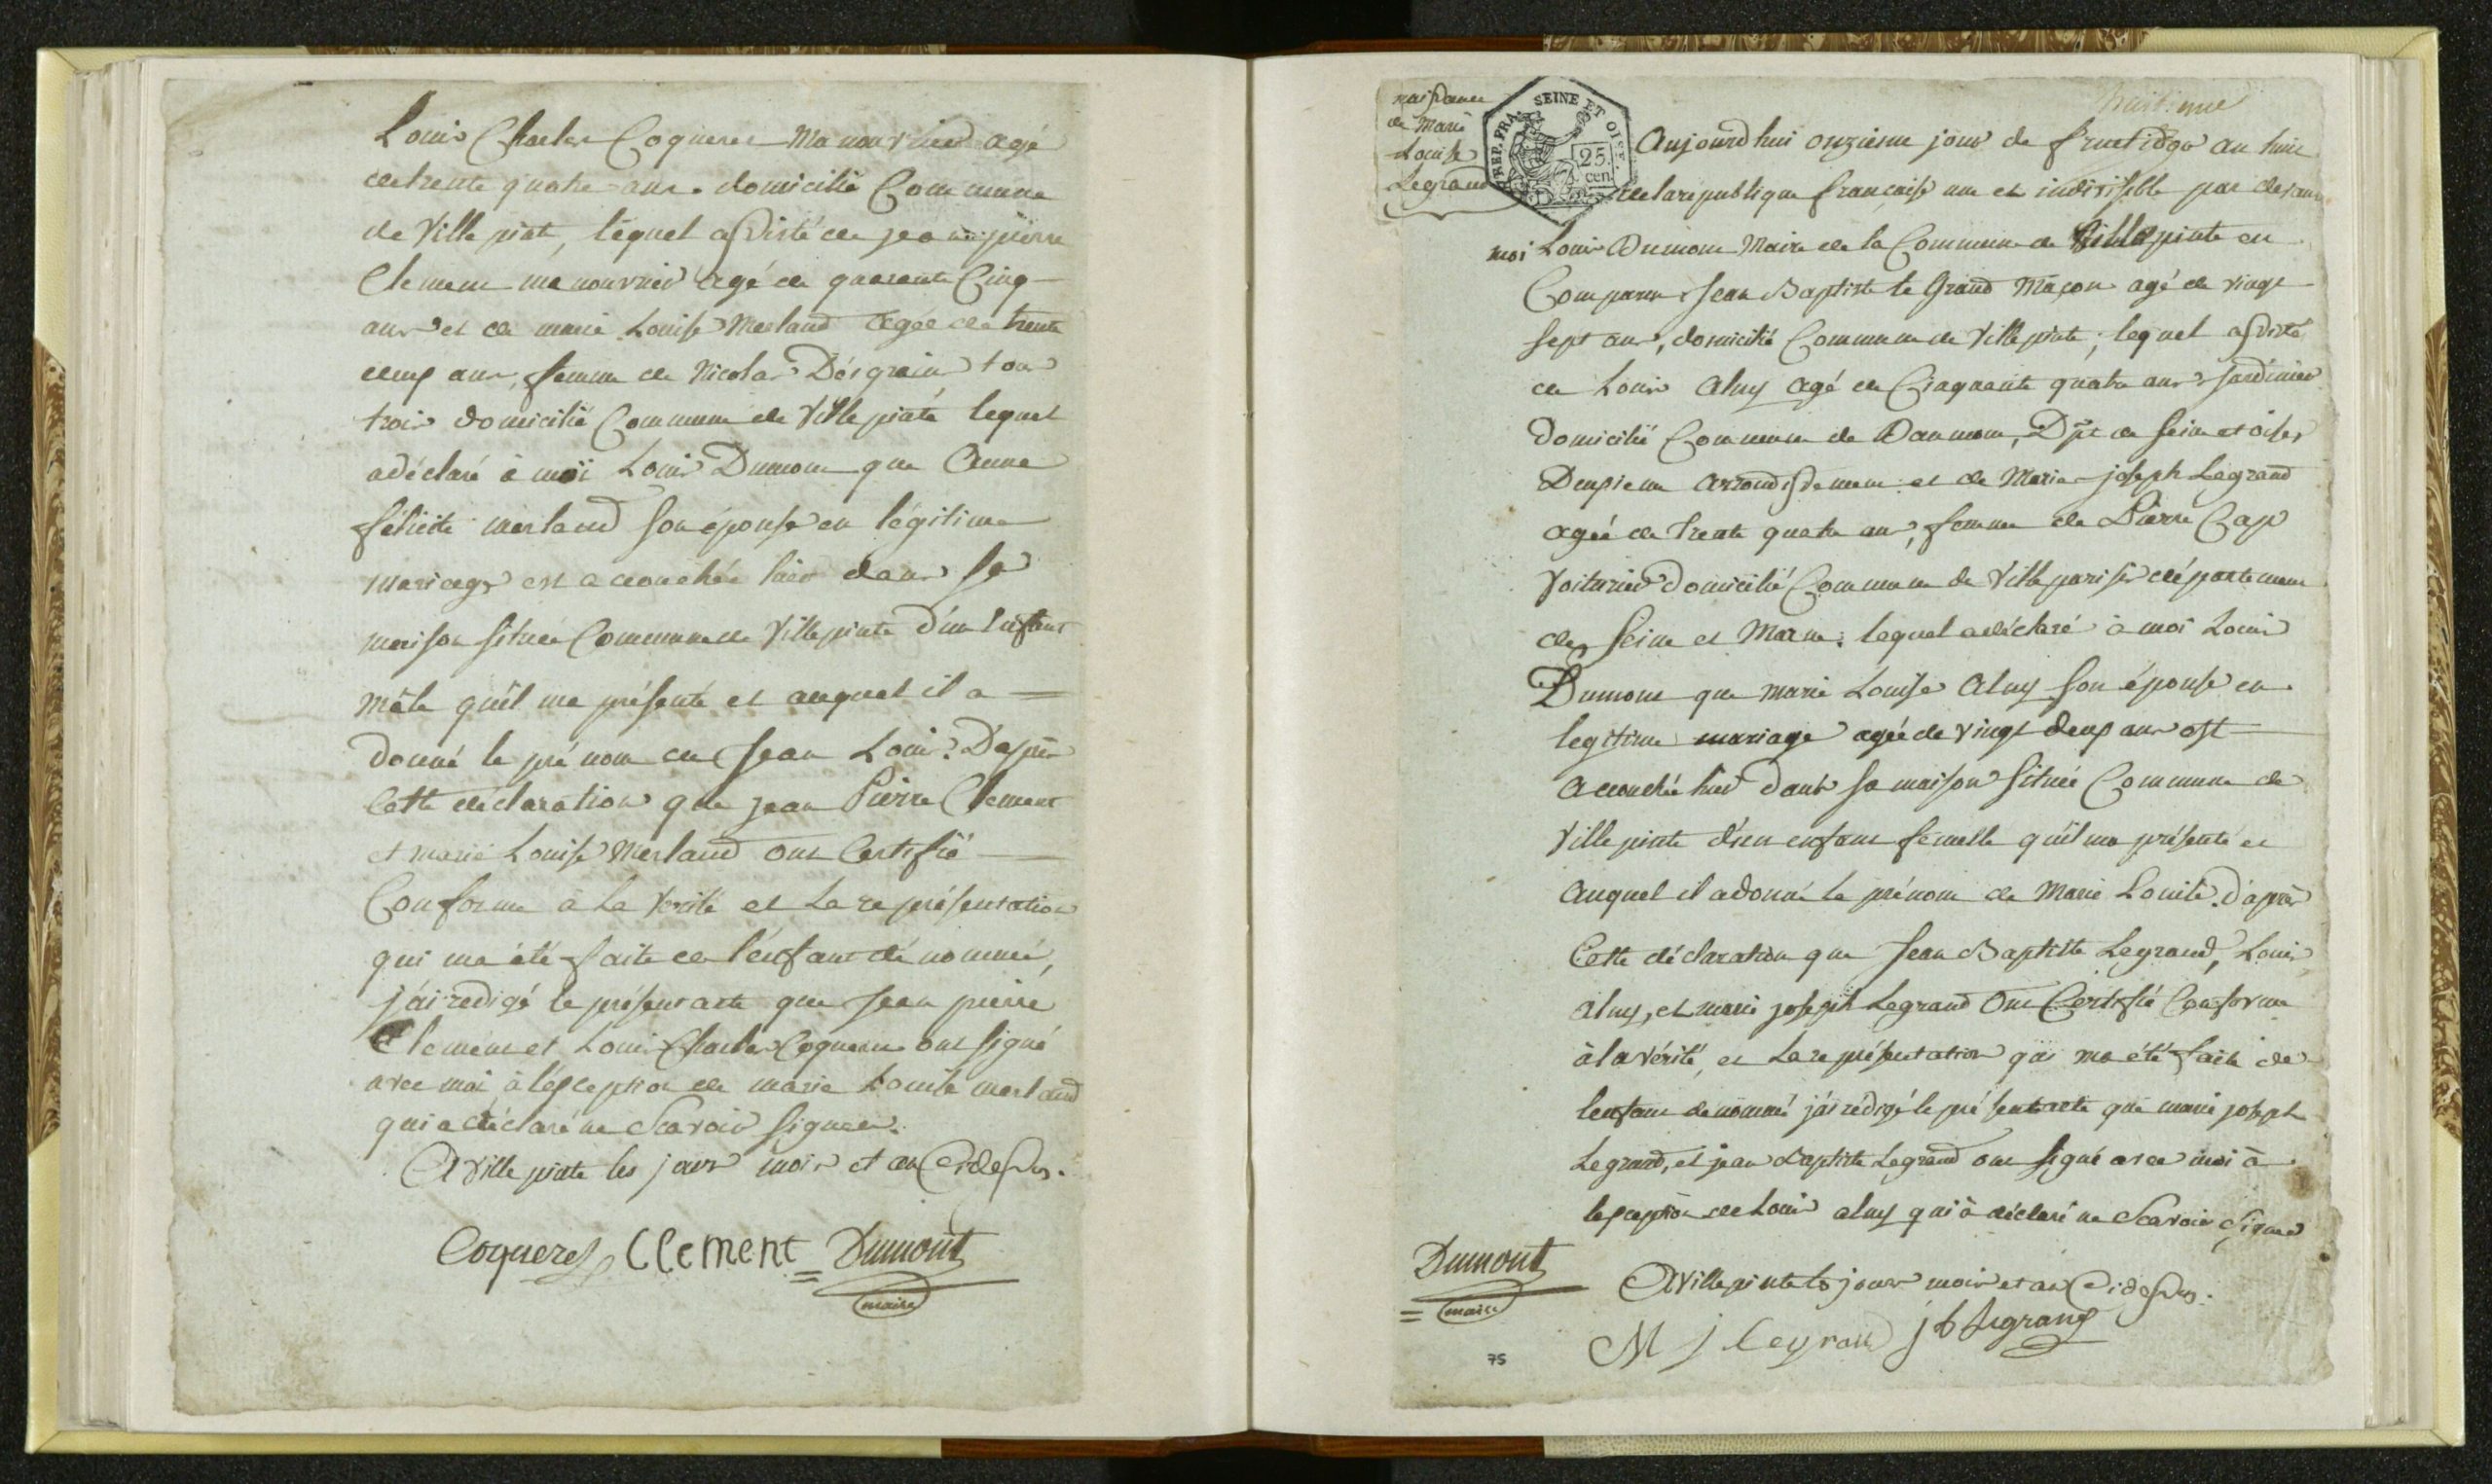 Louis Charles Coqueret Manouvrier agé
de trente quatre ans. domicilié Commune
de Ville pinte, léquel assisté de jean pierre
Clement manouvrier agé de quarante Cinq
ans et de marie Louise Merland agée de trente
deux ans, femme de Nicolas Désgrain tous
trois domicilié Commune de Ville pinte lequel
adéclaré à moi Louis Dumont que Anne
félicité merland son épouse en légitime
mariage est accouchée hier dans sa
maison située Commune de Villepinte d'un Enfant
mâle qu'il ma présenté et auquel il a
donné le pré nom de Jean Louis. D'après
Cette déclaration que jean Pierre Clement
et marie Louise Merland ont Certifié
Conforme à la vérité et la représentation
qui ma été faite de l'enfant dénommé,
j'ai redigé le présent acte que Jean pierre
Clement et Louis Charles Coqueret ont signé
avec moi à l'exception de marie Louise merland
qui a déclaré ne Scavoir signer.
A Ville pinte les jour mois et an Cidessus.
Coqueret Clement Dumont
maire
naissance
de Marie
Louise
Legrand
REP. FRA. SEINE ET OISE
25.
cen.
huitieme
Aujourd'hui onzieme jour de fructidor an huit
de la republique française une et indivisible par devant
moi Louis Dumont Maire de la Commune de Villepinte est
Comparu Jean Baptiste le Grand Maçon agé de vingt
sept ans, domicilié Commune de Ville pinte, lequel assisté
de Louis Aluy agé de Cinquante quatre ans jardinier
domicilié Commune de Danmon, Dpt de Seine et oise,
Deuxieme arrondissement et de Marie joseph Legrand
agée de trente quatre ans, femme de Pierre Cap
Voiturier domicilié Commune de Villeparisis département
de Seine et Marne: lequel a déclaré à moi Louis
Dumont que marie Louise Aluy son épouse en
legitime mariage agée de vingt deux ans est
accouchée hier dans sa maison située Commune de
Ville pinte d'un enfant femelle qu'il ma présenté et
Auquel il a donné le prénom de Marie Louise. d'après
Cette déclaration que Jean Baptiste Legrand, Louis
aluy, et marie joseph Legrand Ont Certifié Conforme
à la vérité, et la représentation qui ma été faite de
lenfant dénommé j'ai redigé le présent acte que marie joseph
Legrand, et jean Baptiste Legrand ont signé avec moi à
lexception de Louis aluy qui à déclaré ne Scavoir Signer
A Villepinte les jour mois et an Cidessus.
Dumont
maire
M j legrand j b legrand
75